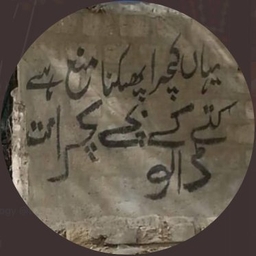 یہاں کچرا پھیکنا منع ہے
کتے کے بچے کچرا مت
ڈالو